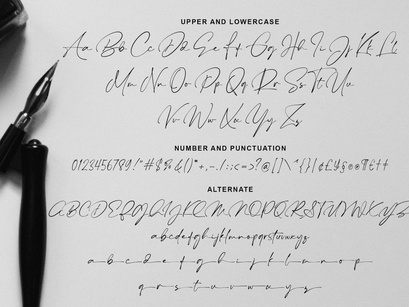 UPPER AND LOWERCASE
Aa Bb Cc Dd Ee Ff Gg Hh Ii Jj Kk Ll
Mm Nn Oo Pp Qq Rr Ss Tt Uu
Vv Ww Xx Yy Zz
NUMBER AND PUNCTUATION
0123456789!"#$%&()*+,-./:;<=>?@[]\^{}|¢£¥§
ALTERNATE
ABCDEFGHIJKLMNOPQRSTUVWXYZ
abcdefghijklmnopqrstuvwxyz
a b c d e f g h i j k l m n o p
q r s t u v w x y z